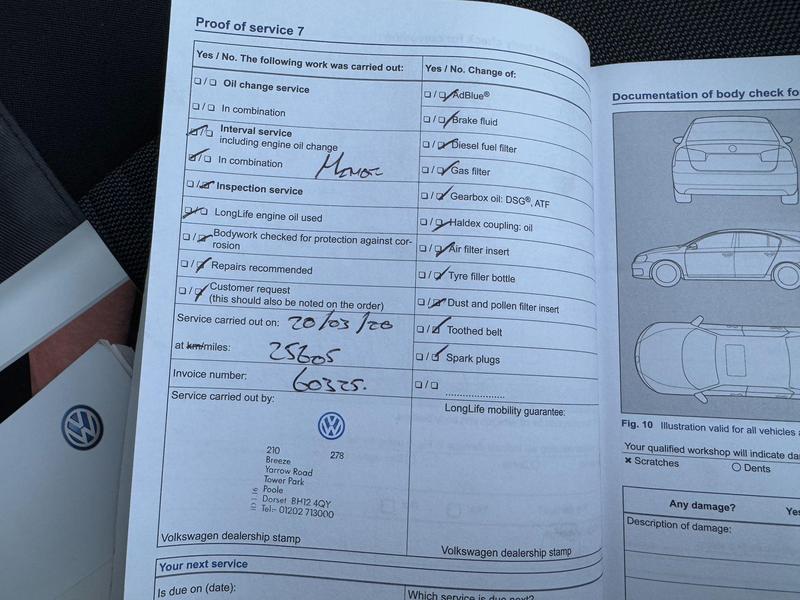 Proof of service 7
Yes / No. The following work was carried out:
☐/☐ Oil change service
☐/☐ In combination
☑/☐ Interval service
including engine oil change
☑/☐ In combination
☐/☑ Inspection service
☑/☐ LongLife engine oil used
☐/☑ Bodywork checked for protection against cor-
rosion
☐/☑ Repairs recommended
☐/☑ Customer request
(this should also be noted on the order)
Service carried out on: 20/03/20
at km/miles: 25605
Invoice number: 60325.
Service carried out by:
210 278
Breeze
Yarrow Road
Tower Park
Poole
Dorset BH12 4QY
Tel:- 01202 713000
Volkswagen dealership stamp
Your next service
Is due on (date):
Yes / No. Change of:
☐/☑ AdBlue®
☐/☑ Brake fluid
☐/☑ Diesel fuel filter
☐/☑ Gas filter
☐/☑ Gearbox oil: DSG®, ATF
☐/☑ Haldex coupling: oil
☐/☑ Air filter insert
☐/☑ Tyre filler bottle
☐/☑ Dust and pollen filter insert
☐/☑ Toothed belt
☐/☑ Spark plugs
☐/☐ ....................
LongLife mobility guarantee:
Volkswagen dealership stamp
Which service is due next?
Documentation of body check fo
Fig. 10 Illustration valid for all vehicles
Your qualified workshop will indicate da
× Scratches ○ Dents
Any damage? Yes
Description of damage: